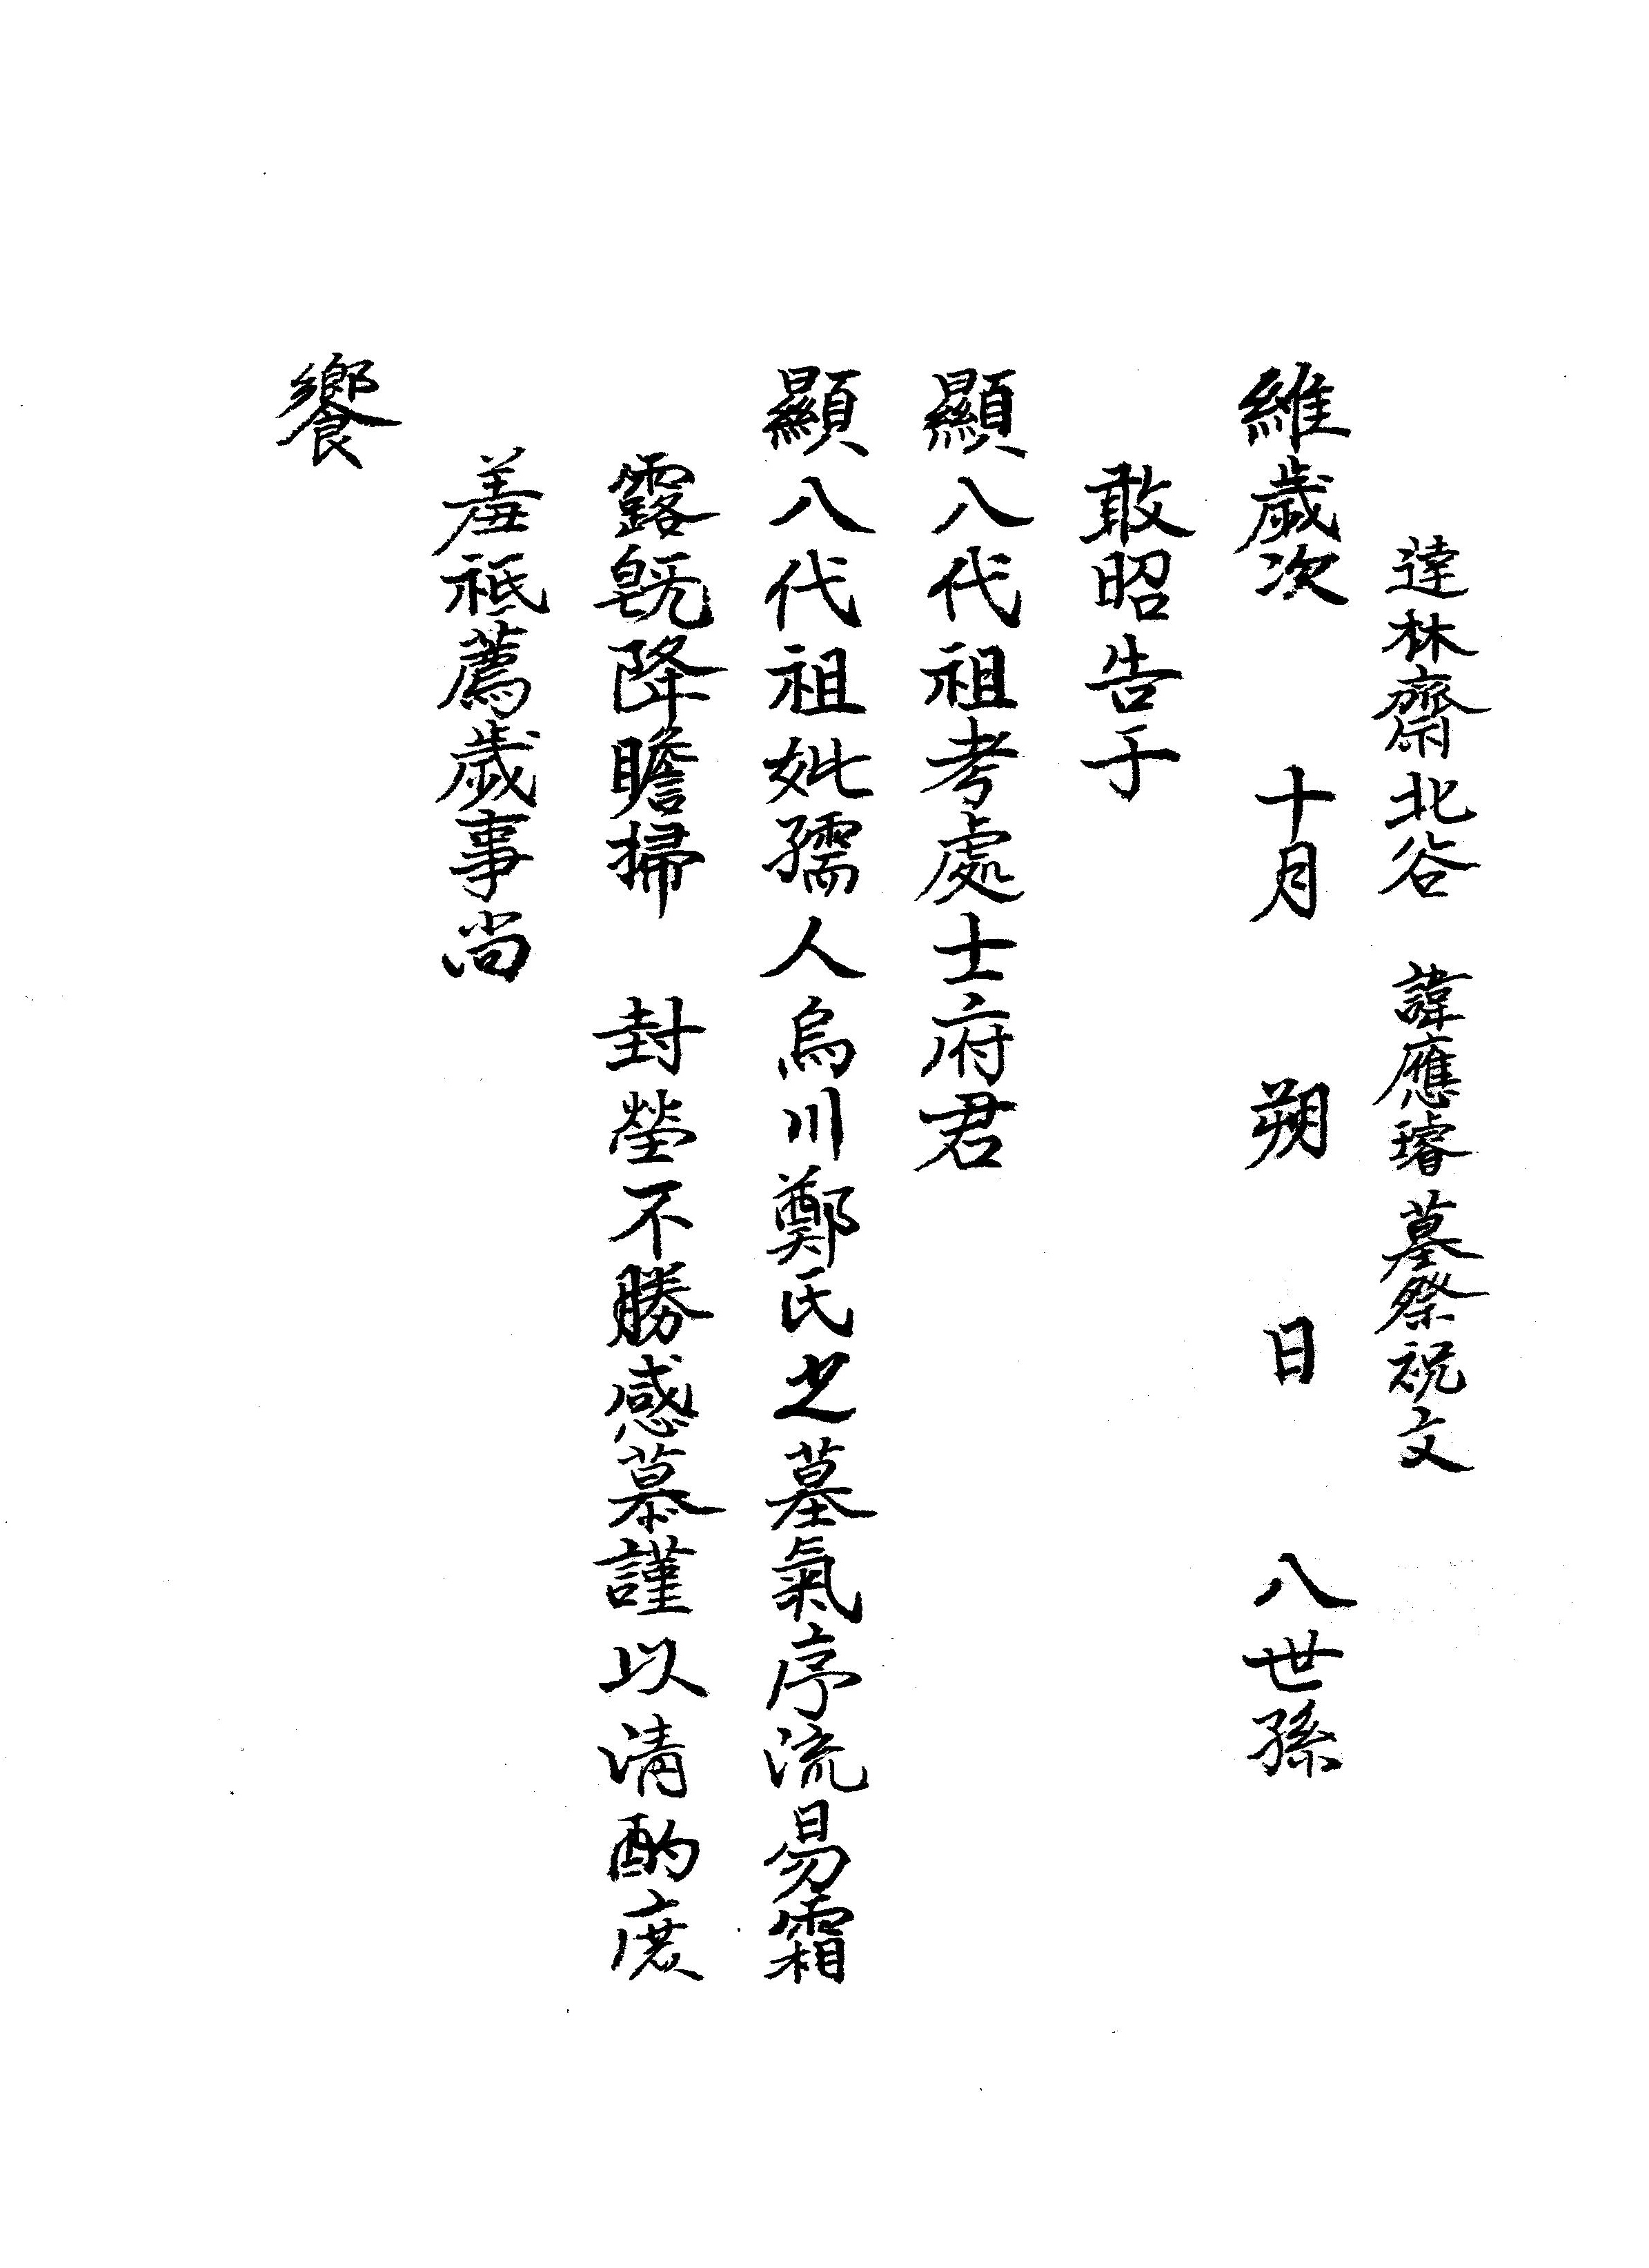 達林齋北谷 諱應璿墓祭祝文
維歲次 十月 朔 日 八世孫
敢昭告于
顯八代祖考處士府君
顯八代祖妣孺人烏川鄭氏之墓氣序流易霜
露旣降瞻掃 封塋不勝感慕謹以淸酌庶
羞祗薦歲事尙
饗